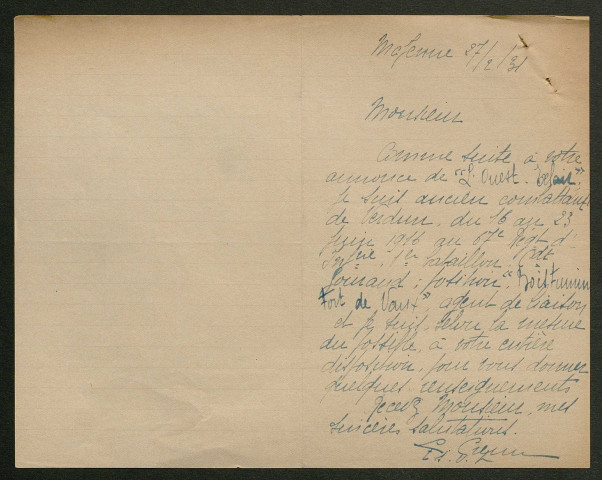 Mayenne 27/2/31
Monsieur
Comme suite à votre
annonce de "L'Ouest-Eclair",
je suis ancien combattant
de Verdun, du 16 au 23
Juin 1916 au 67e Regt d'
Infrie 1er bataillon, 
position "Bois Fumin
Fort de Vaux", agent de liaison
et je suis, selon la mesure
du possible, à votre entière
disposition, pour vous donner
quelques renseignements
Recevez Monsieur, mes
sincères salutations.